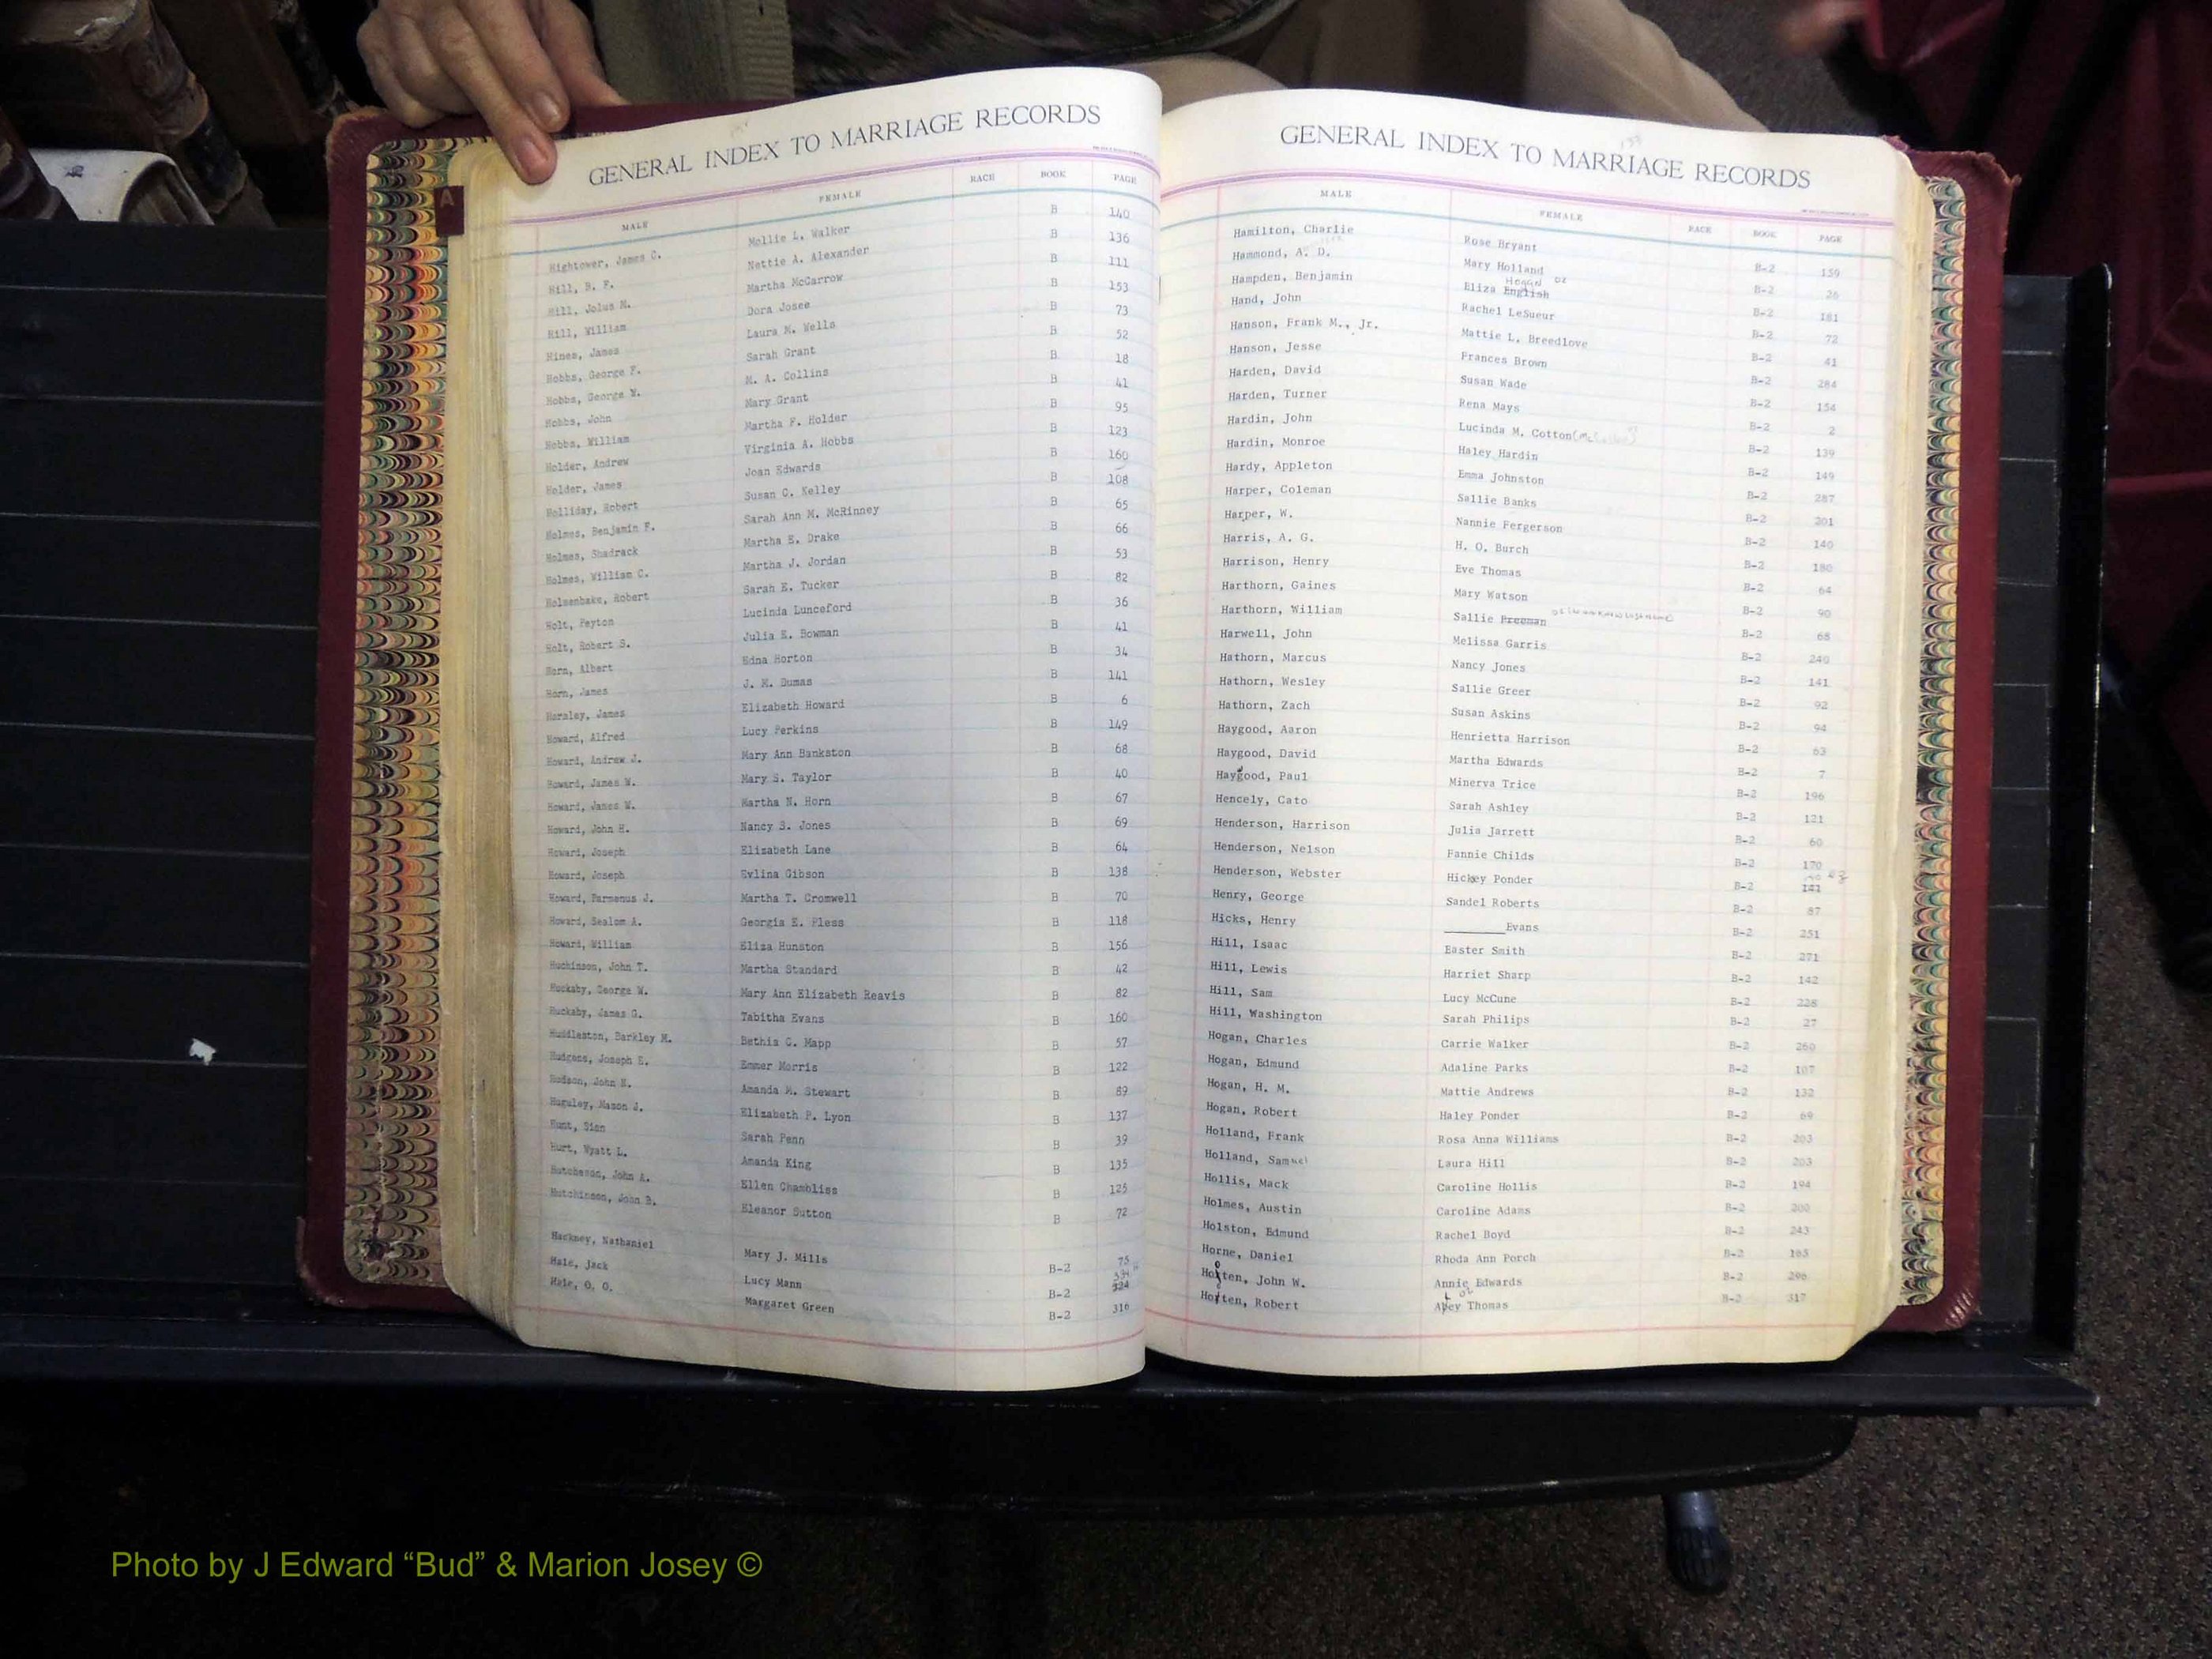 GENERAL INDEX TO MARRIAGE RECORDS
MALE FEMALE RACE BOOK PAGE
Hightower, James C. Mollie L. Walker B 140
Hill, B. F. Nettie A. Alexander B 136
Hill, Jolus M. Martha McCarrow B 111
Hill, William Dora Josee B 153
Hines, James Laura M. Wells B 73
Hobbs, George F. Sarah Grant B 52
Hobbs, George W. M. A. Collins B 18
Hobbs, John Mary Grant B 41
Hobbs, William Martha F. Holder B 95
Holder, Andrew Virginia A. Hobbs B 123
Holder, James Joan Edwards B 160
Holliday, Robert Susan C. Kelley B 108
Holmes, Benjamin F. Sarah Ann M. McKinney B 65
Holmes, Shadrack Martha E. Drake B 66
Holmes, William C. Martha J. Jordan B 53
Robert Sarah E. Tucker B 82
Holt, Peyton Lucinda Lunceford B 36
Holt, Robert S. Julia E. Bowman B 41
Horn, Albert Edna Horton B 34
Horn, James J. M. Dumas B 141
Horsley, James Elizabeth Howard B 6
Howard, Alfred Lucy Perkins B 149
Howard, Andrew J. Mary Ann Bankston B 68
Howard, James W. Mary S. Taylor B 40
Howard, James W. Martha N. Horn B 67
Howard, John H. Nancy S. Jones B 69
Howard, Joseph Elizabeth Lane B 64
Howard, Joseph Evlina Gibson B 138
Howard, Parmenus J. Martha T. Cromwell B 70
Howard, Sealom A. Georgia E. Pless B 118
Howard, William Eliza Hunston B 156
Huckinson, John T. Martha Standard B 42
Huckaby, George W. Mary Ann Elizabeth Reavis B 82
Huckaby, James G. Tabitha Evans B 160
Huddleston, Barkley M. Bethis C. Mapp B 57
Hudgens, Joseph E. Emmer Morris B 122
Hudson, John H. Amanda M. Stewart B 89
Huguley, Mason J. Elizabeth P. Lyon B 137
Hunt, Sion Sarah Penn B 39
Hurt, Wyatt L. Amanda King B 135
Hutcheson, John A. Ellen Chambliss B 125
Hutchinson, John B. Eleanor Sutton B 72
Hackney, Nathaniel Mary J. Mills B-2 75
Hale, Jack Lucy Mann B-2 334 324
Hale, O. O. Margaret Green B-2 316
GENERAL INDEX TO MARRIAGE RECORDS
MALE FEMALE RACE BOOK PAGE
Hamilton, Charlie Rose Bryant B-2 159
Hammond, A. D. Mary Holland B-2 26
Hogan or
Hampden, Benjamin Eliza English B-2 181
Hand, John Rachel LeSueur B-2 72
Hanson, Frank M., Jr. Mattie L. Breedlove B-2 41
Hanson, Jesse Frances Brown B-2 284
Harden, David Susan Wade B-2 154
Harden, Turner Rena Mays B-2 2
Hardin, John Lucinda M. Cotton B-2 139
Hardin, Monroe Haley Hardin B-2 149
Hardy, Appleton Emma Johnston B-2 287
Harper, Coleman Sallie Banks B-2 201
Harper, W. Nannie Fergerson B-2 140
Harris, A. G. H. O. Burch B-2 180
Harrison, Henry Eve Thomas B-2 64
Harthorn, Gaines Mary Watson B-2 90
Harthorn, William Sallie Freeman B-2 68
Harwell, John Melissa Garris B-2 240
Hathorn, Marcus Nancy Jones B-2 141
Hathorn, Wesley Sallie Greer B-2 92
Hathorn, Zach Susan Askins B-2 94
Haygood, Aaron Henrietta Harrison B-2 63
Haygood, David Martha Edwards B-2 7
Haygood, Paul Minerva Trice B-2 196
Hencely, Cato Sarah Ashley B-2 121
Henderson, Harrison Julia Jarrett B-2 60
Henderson, Nelson Fannie Childs B-2 170
Henderson, Webster Hickey Ponder B-2 141
Henry, George Sandel Roberts B-2 87
Hicks, Henry ________Evans B-2 251
Hill, Isaac Easter Smith B-2 271
Hill, Lewis Harriet Sharp B-2 142
Hill, Sam Lucy McCune B-2 228
Hill, Washington Sarah Philips B-2 27
Hogan, Charles Carrie Walker B-2 260
Hogan, Edmund Adaline Parks B-2 107
Hogan, H. M. Mattie Andrews B-2 132
Hogan, Robert Haley Ponder B-2 69
Holland, Frank Rosa Anna Williams B-2 203
Holland, Samuel Laura Hill B-2 203
Hollis, Mack Caroline Hollis B-2 194
Holmes, Austin Caroline Adams B-2 200
Holston, Edmund Rachel Boyd B-2 243
Horne, Daniel Rhoda Ann Porch B-2 165
Horten, John W. Annie Edwards B-2 296
Horten, Robert Abey Thomas B-2 317
A
Photo by J Edward “Bud” & Marion Josey ©